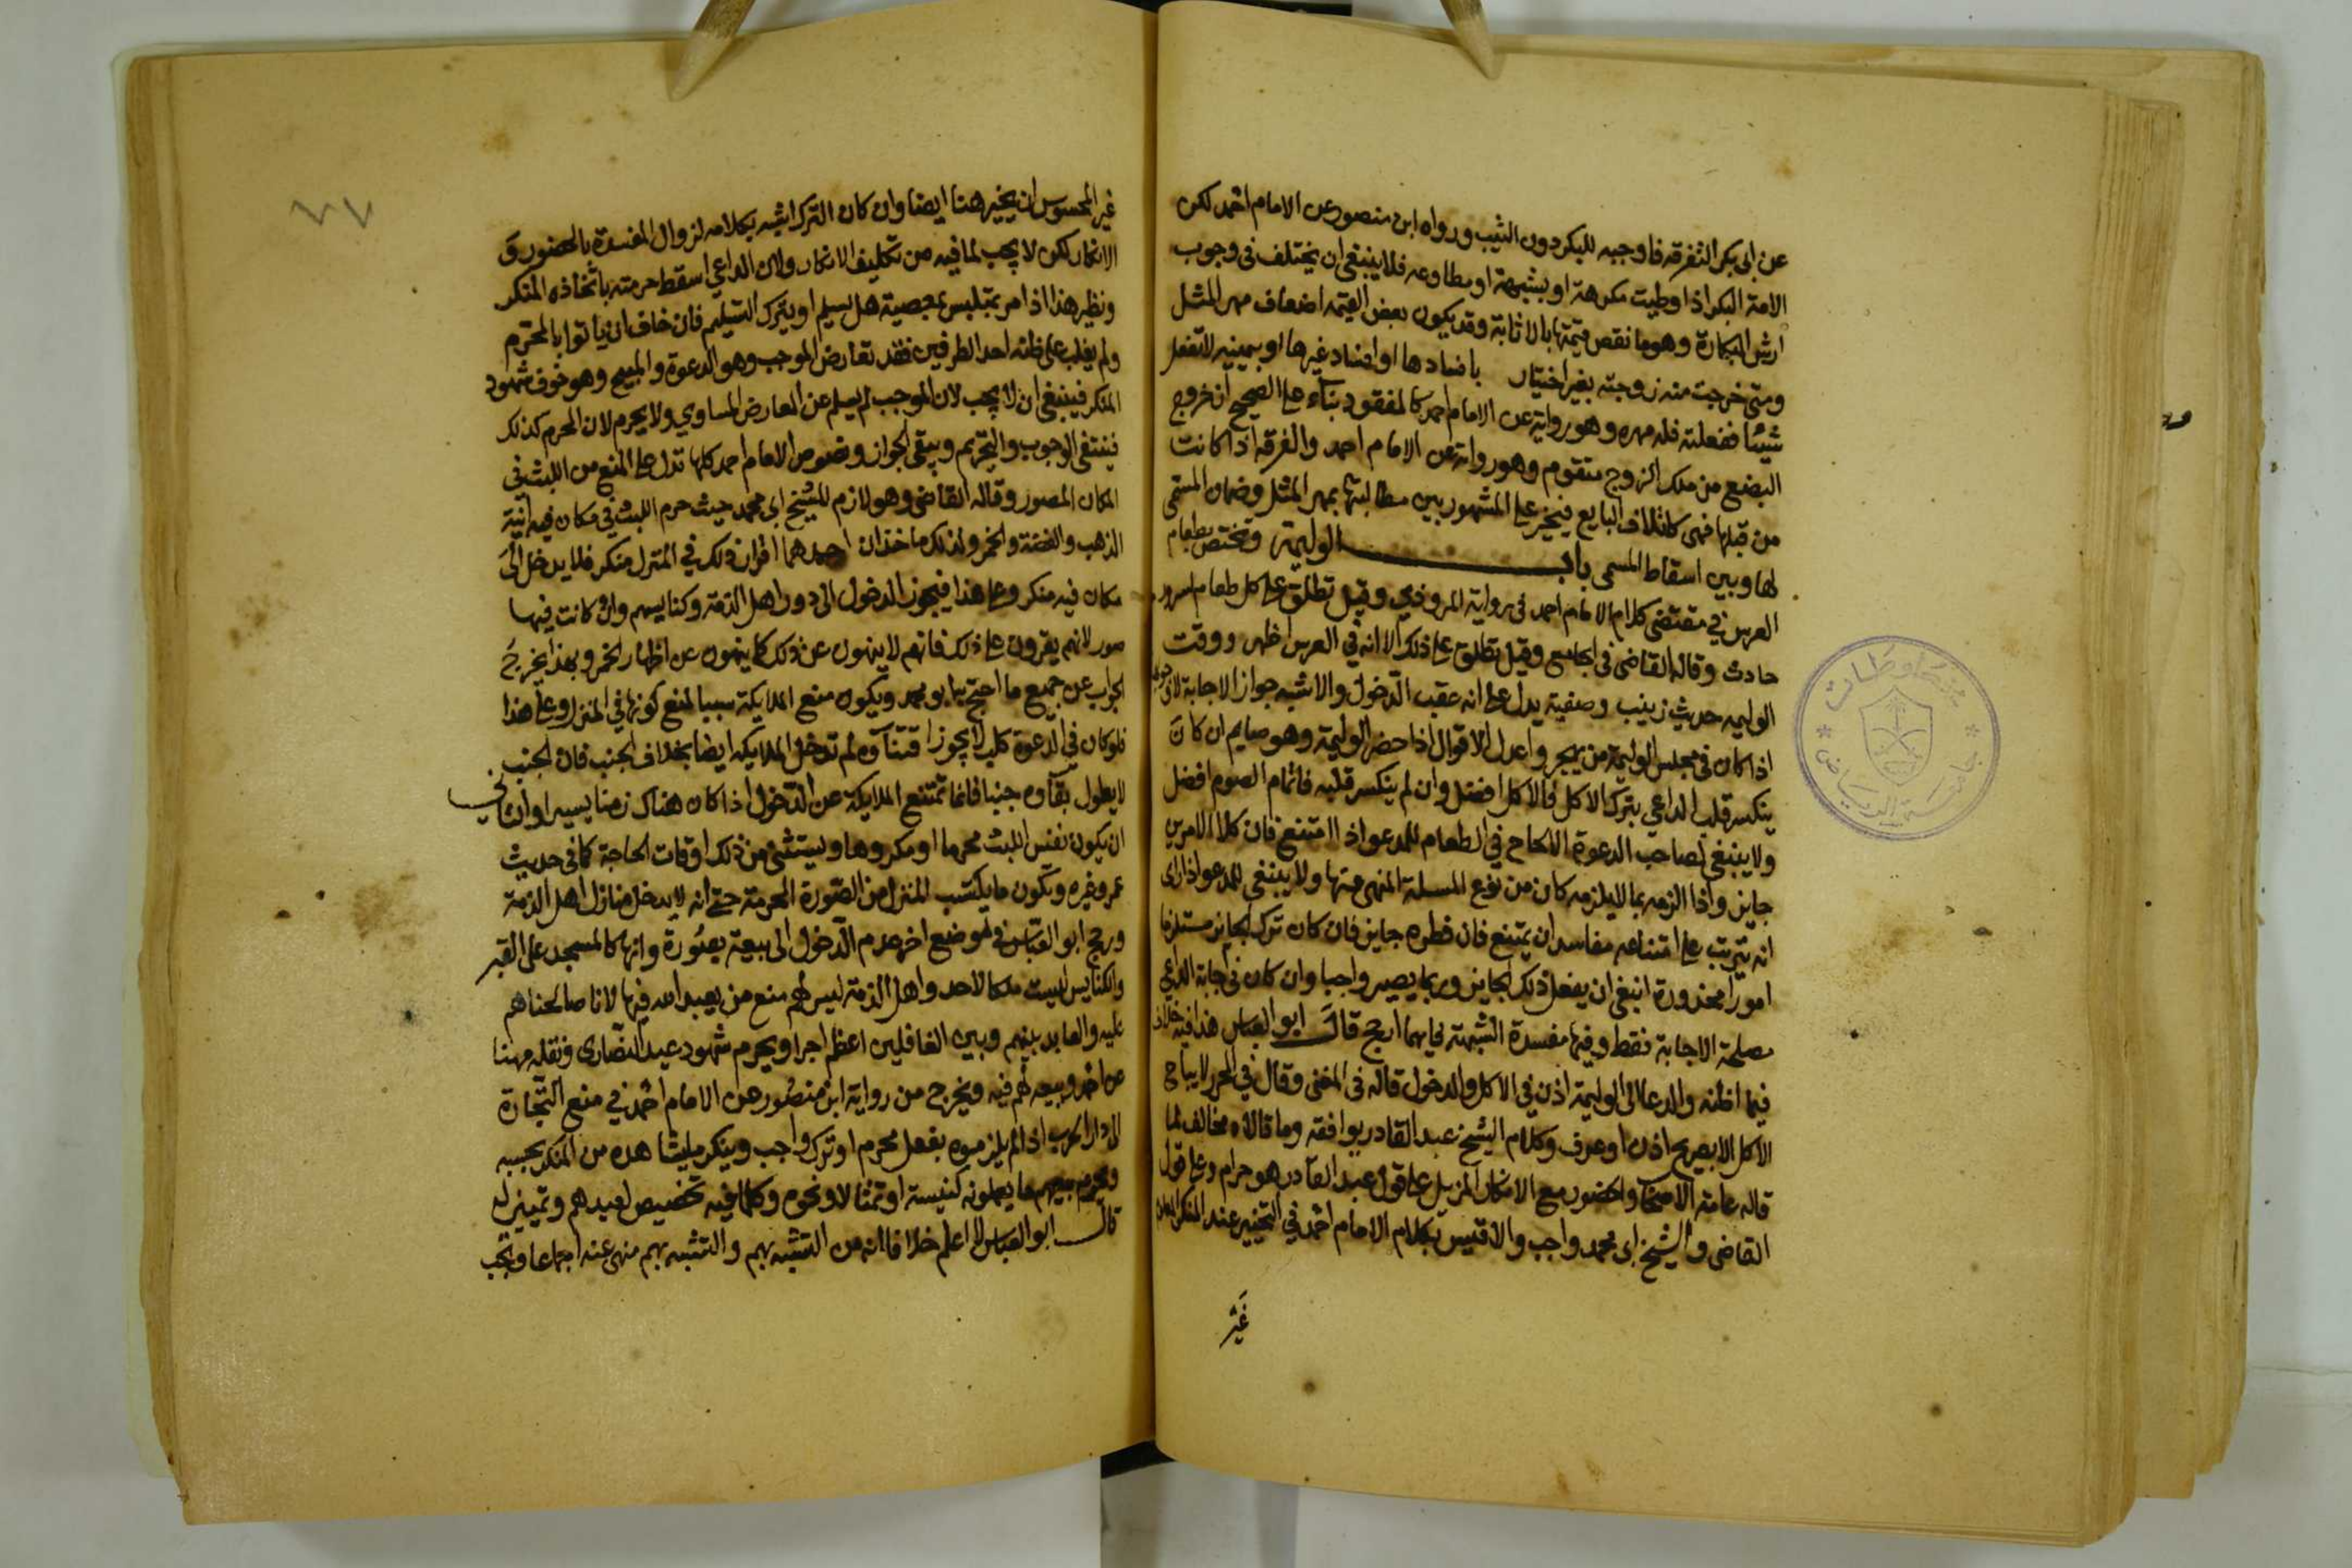 عن ابى بكر التفرقه فاوجبه للبكر دون الثيب ورواه ابن منصور عن الامام احمد لكن
الامة البكر اذا وطيت مكرهة او بشبهة او مطاوعه فلا ينبغى ان يختلف فى وجوب
ارش البكارة وهو ما نقص قيمتها بالاثابة وقد يكون بعض القيمه اضعاف مهر المثل
ومتى خرجت منه زوجته بغير اختياره بافسادها او افساد غيرها او بيمينه لا تفعل
شيئا ففعلته فله مهره وهو رواية عن الامام احمد كالمفقود بناء على الصحيح ان خروج
البضع من ملك الزوج متقوم وهو رواية عن الامام احمد والفرقه اذا كانت
من قبلها فهى كاتلاف البايع فيخير على المشهور بين مطالبتها بمهر المثل وضمان المسمى
لها وبين اسقاط المسمى باب الوليمة وتختص بطعام
العرس في مقتضى كلام الامام احمد فى رواية المروذي وقيل تطلق على كل طعام لسرور
حادث وقاله القاضى فى الجامع وقيل تطلق على ذلك الا انه في العرس اظهر ووقت
الوليمه حديث زينب وصفية يدل على انه عقب الدخول والاشبه جواز الاجابة لا وجوبها
اذا كان فى مجلس الوليمة من يهجر واعدل الاقوال اذا حضر الوليمة وهو صايم ان كان
ينكسر قلب الداعي بترك الاكل فالاكل افضل وان لم ينكسر قلبه فاتمام الصوم افضل
ولا ينبغى لصاحب الدعوة الالحاح في الطعام للمدعو اذا امتنع فان كلا الامرين
جايز واذا الزمه بما لا يلزمه كان من نوع المسلة المنهى عنها ولا ينبغى للمدعو اذا راى
انه يترتب على امتناعه مفاسد ان يمتنع فان فطره جايز فان كان ترك الجايز مستلزما
امورا محذورة انبغى ان يفعل ذلك الجايز وربما يصير واجبا وان كان فى اجابة الداعي
مصلحة الاجابة فقط وفيها مفسدة الشبهة فايهما ارجح قال ابو العباس هذا فيه خلاف
فيما اظنه والدعا الى الوليمة اذن في الاكل والدخول قاله فى المغنى وقال في المحرر لا يباح
الاكل الا بصريح اذن او عرف وكلام الشيخ عبد القادر يوافقه وما قالاه مخالف لما
قاله عامة الاصحاب والحضور مع الانكار المزيل على قول عبد القادر هو حرام وعلى قول
القاضى والشيخ ابى محمد واجب والاقيس بكلام الامام احمد في التخيير عند المنكر المعلوم
غير
غير المحسوس ان يخير هنا ايضا وان كان الترك اشبه بكلامه لزوال المفسدة بالحضور و
الانكار لكن لا يجب لما فيه من تكليف الانكار ولان الداعي اسقط حرمته باتخاذه المنكر
ونظير هذا اذا مر بمتلبس بمعصية هل يسلم او يترك التسليم فان خاف ان ياتوا بالمحرم
ولم يغلب على ظنه احد الطرفين فقد تعارض الموجب وهو الدعوة والمبيح وهو خوف شهود
المنكر فينبغى ان لا يجب لان الموجب لم يسلم عن العارض المساوي ولا يحرم لان المحرم كذلك
فينتفى الوجوب والتحريم ويبقى الجواز ونصوص الامام احمد كلها تدل على المنع من اللبث في
المكان المصور وقاله القاضى وهو لازم للشيخ ابى محمد حيث حرم اللبث في مكان فيه انية
الذهب والفضة والخمر ولذلك ماخذان احدهما اقران ذلك في المنزل منكر فلا يدخل الى
مكان فيه منكر وعلى هذا فيجوز الدخول الى دور اهل الذمة وكنايسهم وان كانت فيها
صور لانهم يقرون على ذلك فانهم لا ينهون عن ذلك كما ينهون عن اظهار الخمر وبهذا يخرج
الجواب عن جميع ما احتج به ابو محمد ويكون منع الملايكة سببا لمنع كونها في المنزل وعلى هذا
فلو كان في الدعوة كلب لا يجوز اقتناوه لم تدخل الملايكه ايضا بخلاف الجنب فان الجنب
لا يطول بقاوه جنبا فانما تمتنع الملايكة عن الدخول اذا كان هناك زمنا يسيرا والثاني
ان يكون نفس اللبث محرما او مكروها ويستثنى من ذلك اوقات الحاجة كما فى حديث
عمر وغيره ويكون ما يكتسب المنزل من الصورة المحرمة حتى انه لا يدخل منازل اهل الذمة
ورجح ابو العباس في موضع اخر عدم الدخول الى بيعة بصورة وانها كالمسجد على القبر
والكنايس ليست ملكا لاحد واهل الذمة ليس لهم منع من يعبد الله فيها لانا صالحناهم
عليه والعابد بينهم وبين الغافلين اعظم اجرا ويحرم شهود عيد النصارى ونقله مهنا
عن احمد وبيعه لهم فيه ويخرج من رواية ابن منصور عن الامام احمد في منع التجارة
الى دار الحرب اذا لم يلزموه بفعل محرم او ترك واجب وينكر ما يشاهده من المنكر بحسبه
ويحرم بيعهم ما يعملونه كنيسة او تمثالا ونحوه وكلما فيه تخصيص لعيدهم وتمييز له
قال ابو العباس لا اعلم خلافا انه من التشبه بهم والتشبه بهم منهى عنه اجماعا وتجب